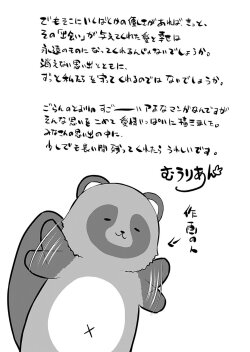 でもそこにいくばくかの優しさがあればきっと、
その「出会い」が与えてくれた愛と幸せは
永遠のものになってくれるんじゃないでしょうか。
消えない思い出とともに、
ずっと私たちを守ってくれるのではないでしょうか。
ごらんのとおりのすご────いアホなマンガなんですが
そんな思いをこめて愛情いっぱいに描きました。
みなさんの思い出の中に、
少しでも長い間残ってくれたらうれしいです。
むうりあん
作画の人